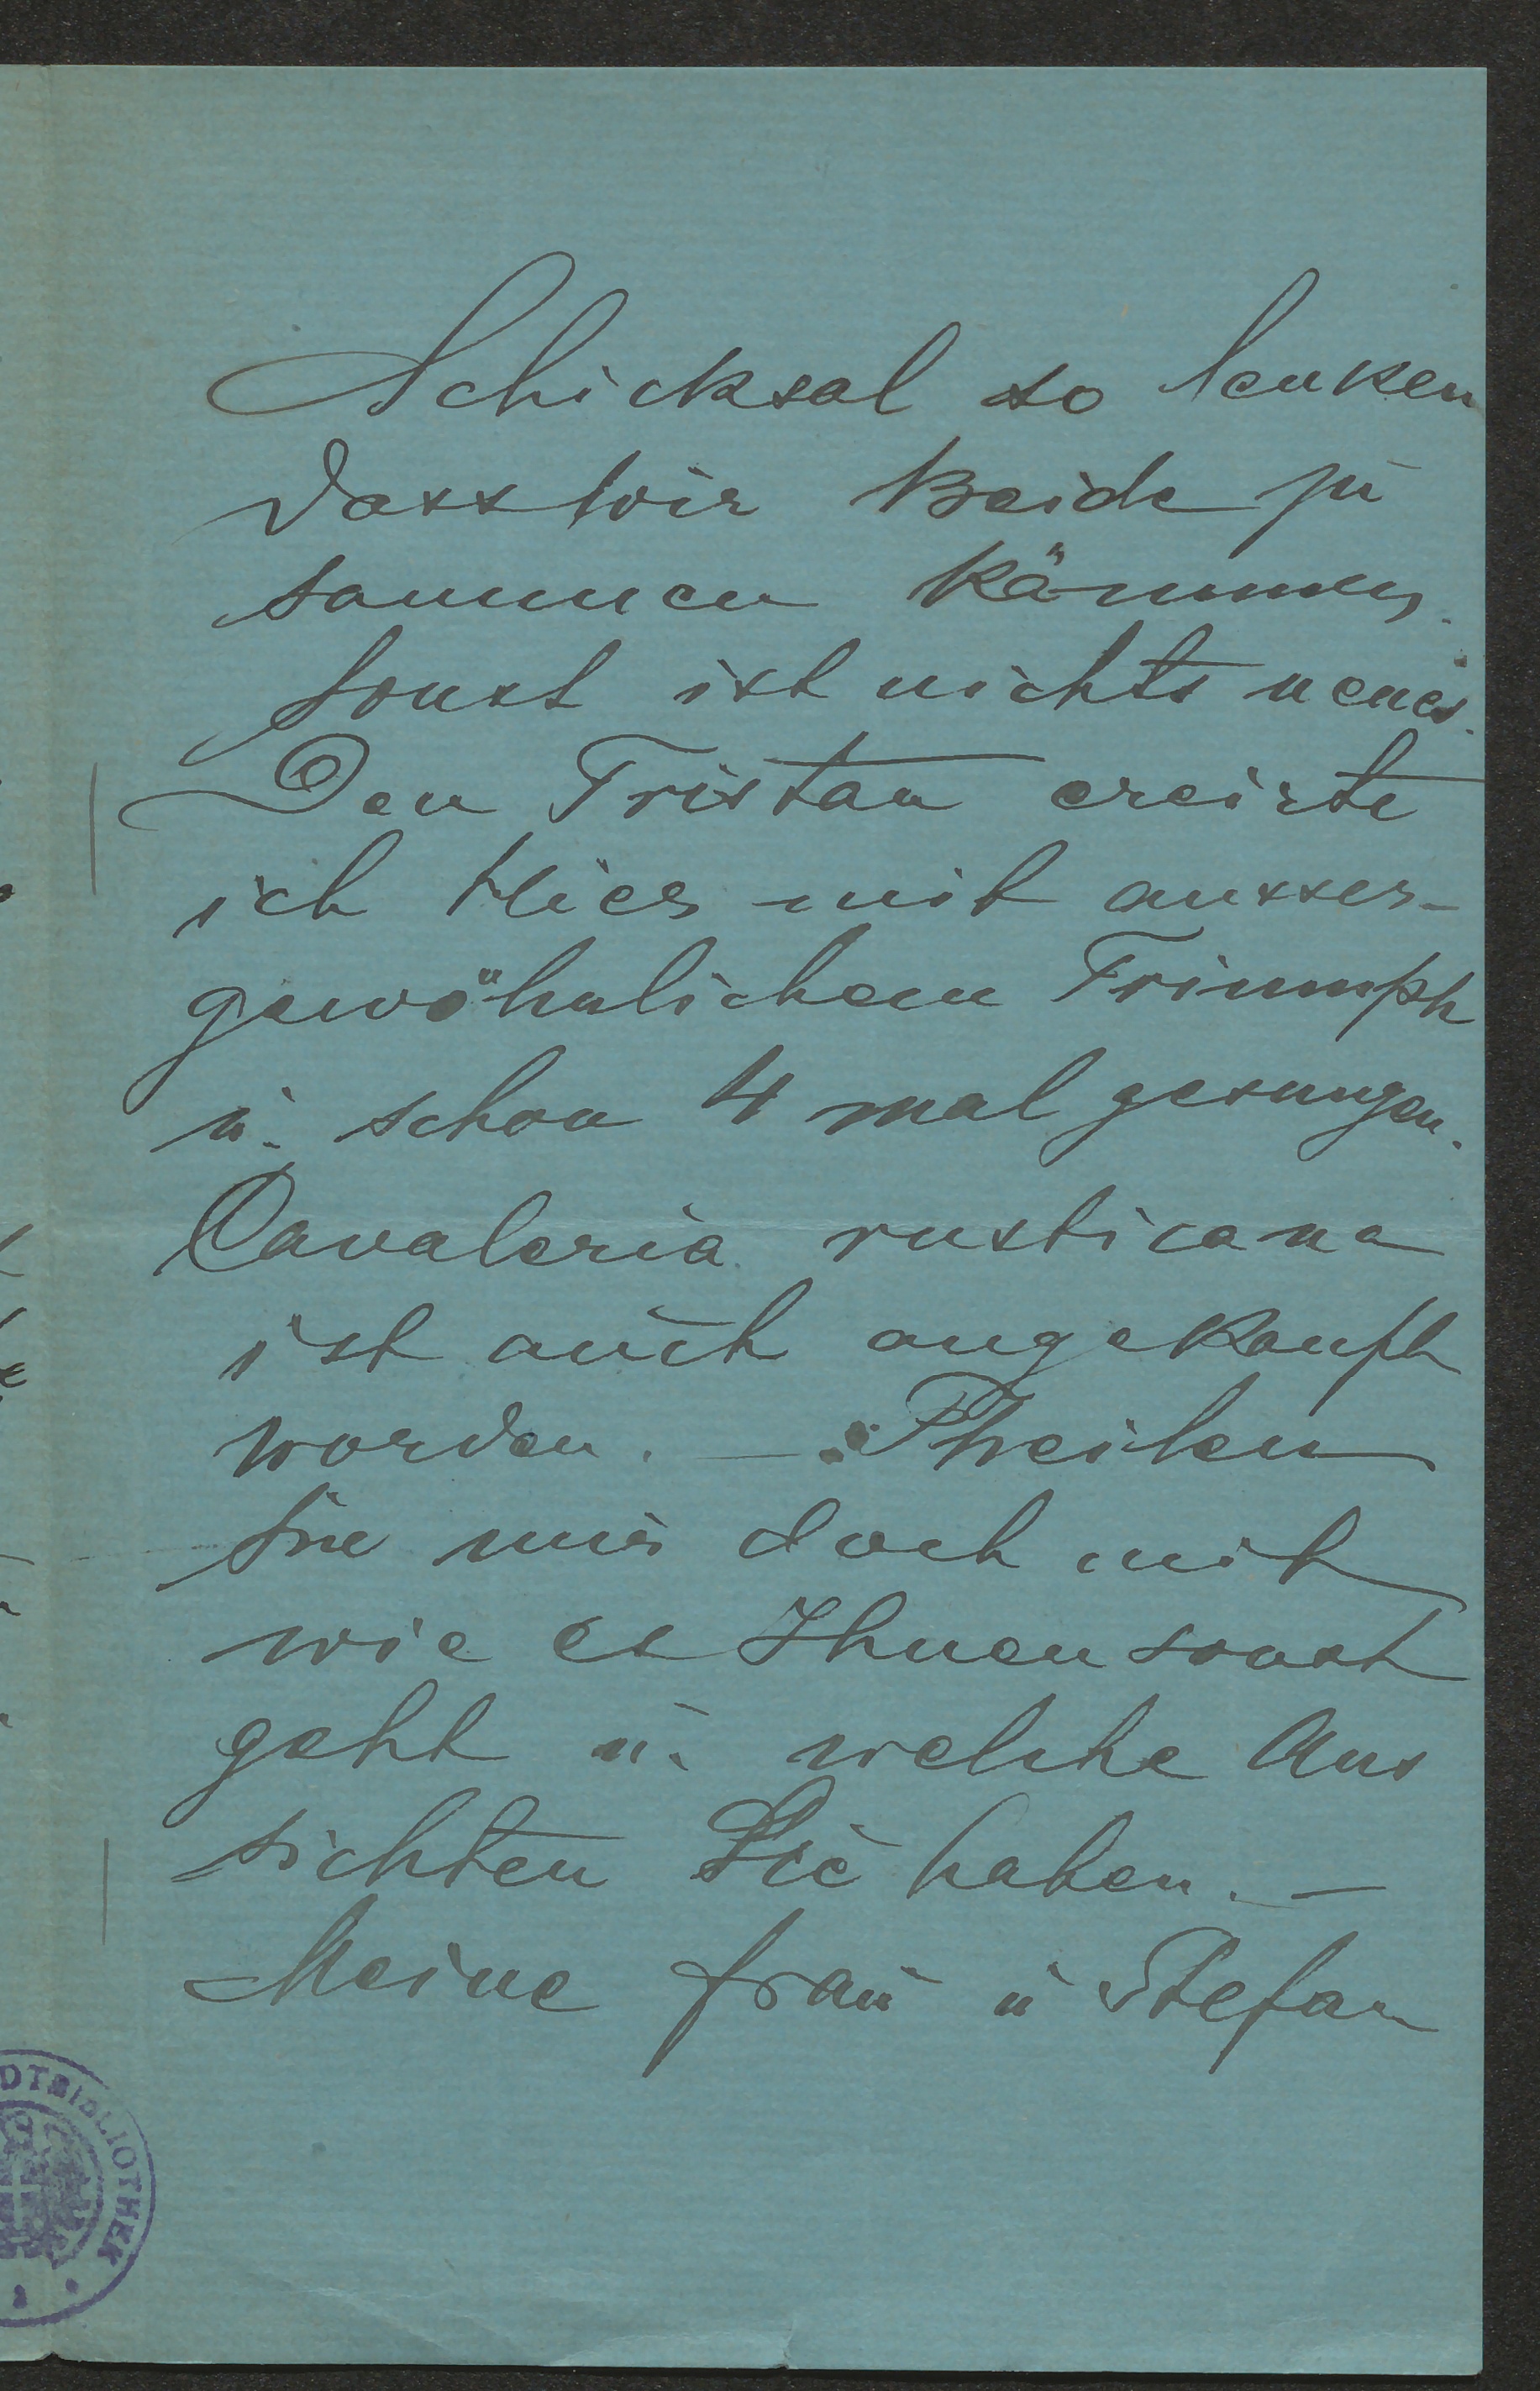 Schicksal so lenken
dass wir Beide zu
sammen kämmen.
Sonst ist nichts neues.
Den Tristan creirte
ich Hier mit ausser-
gewöhnlichem Triumph
u. schon 4 mal gesungen.
Cavaleria rusticana
ist auch angekauft
worden. – Theilen
Sie mir doch mit
wie es Ihnen sonst
geht u. welche Aus
sichten Sie haben. –
Meine Frau u Stefan
DTBIBLIOTHEK